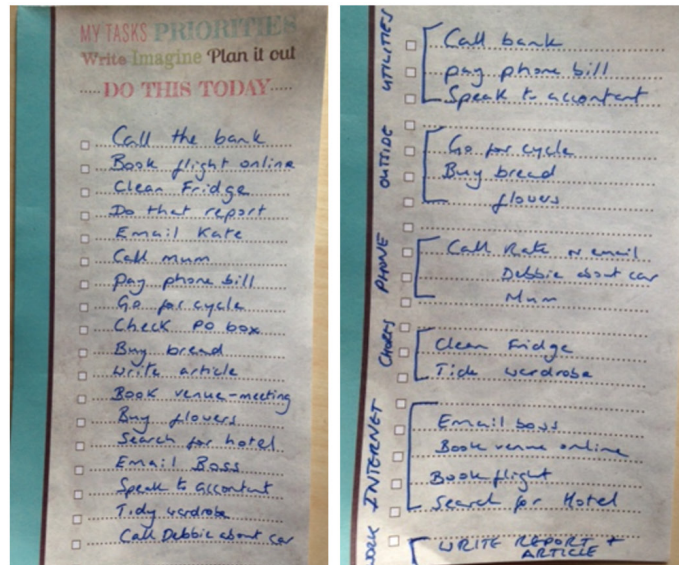 MY TASKS PRIORITIES
Write Imagine Plan it out
DO THIS TODAY
Call the bank
Book flight online
Clean Fridge
Do that report
Email Kate
Call mum
pay phone bill
Go for cycle
Check PO box
Buy bread
Write article
Book venue-meeting
Buy flowers
Search for hotel
Email Boss
Speak to accontant
Tidy wardrobe
Call Debbie about car
UTILITIES
Call bank
pay phone bill
Speak to accontant
OUTTIDE
Go for cycle
Buy bread
flowers
PHONE
Call Kate or email
Debbie about car
Mum
CHORES
Clean Fridge
Tide wardrobe
INTERNET
Email boss
Book venue online
Book flight
Search for Hotel
WORK
WRITE REPORT +
ARTICLE